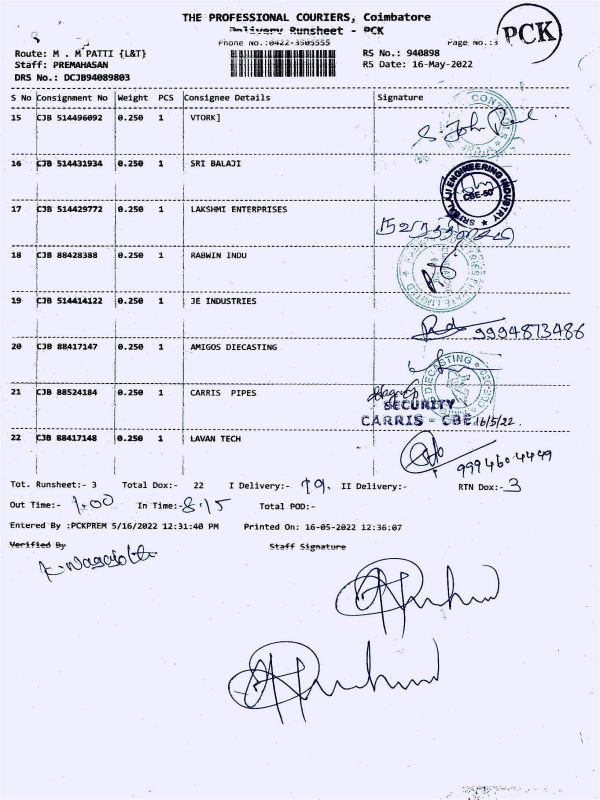 THE PROFESSIONAL COURIERS, Coimbatore
Delivery Runsheet - PCK
PCK
Phone No.:0422-3505555
Page No.:3
Route: M . M PATTI {L&T}
RS No.: 940898
Staff: PREMAHASAN
RS Date: 16-May-2022
DRS No.: DCJB94089803
S No Consignment No Weight PCS Consignee Details Signature
15 CJB 514496092 0.250 1 VTORK]
16 CJB 514431934 0.250 1 SRI BALAJI
SRI BALAJI ENGINEERING INDUSTRY CBE-60
17 CJB 514429772 0.250 1 LAKSHMI ENTERPRISES
18 CJB 88428388 0.250 1 RABWIN INDU
19 CJB 514414122 0.250 1 JE INDUSTRIES
9994873486
20 CJB 88417147 0.250 1 AMIGOS DIECASTING
DIECASTING
21 CJB 88524184 0.250 1 CARRIS PIPES
SECURITY
CARRIS - CBE 16/5/22.
22 CJB 88417148 0.250 1 LAVAN TECH
999460 4499
Tot. Runsheet:- 3 Total Dox:- 22 I Delivery:- 19. II Delivery:- RTN Dox:- 3
Out Time:- 1.00 In Time:- 8.15 Total POD:-
Entered By :PCKPREM 5/16/2022 12:31:40 PM Printed On: 16-05-2022 12:36:07
Verified By Staff Signature